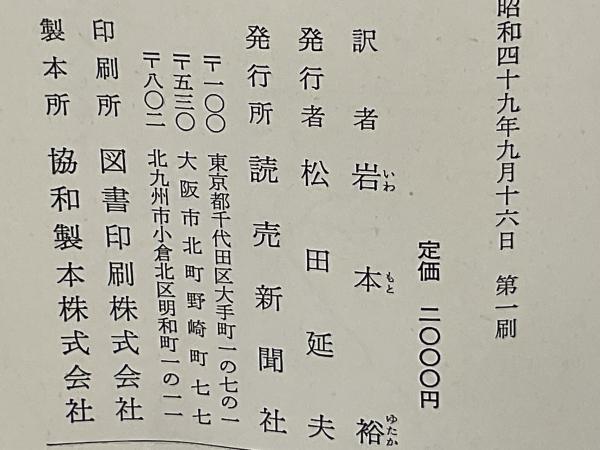 昭和四十九年九月十六日 第一刷
定価 二〇〇〇円
訳者 岩本裕
いわ もと ゆたか
発行者 松田延夫
発行所 読売新聞社
〒一〇〇 東京都千代田区大手町一の七の一
〒五三〇 大阪市北町野崎町七七
〒八〇二 北九州市小倉北区明和町一の一一
印刷所 図書印刷株式会社
製本所 協和製本株式会社